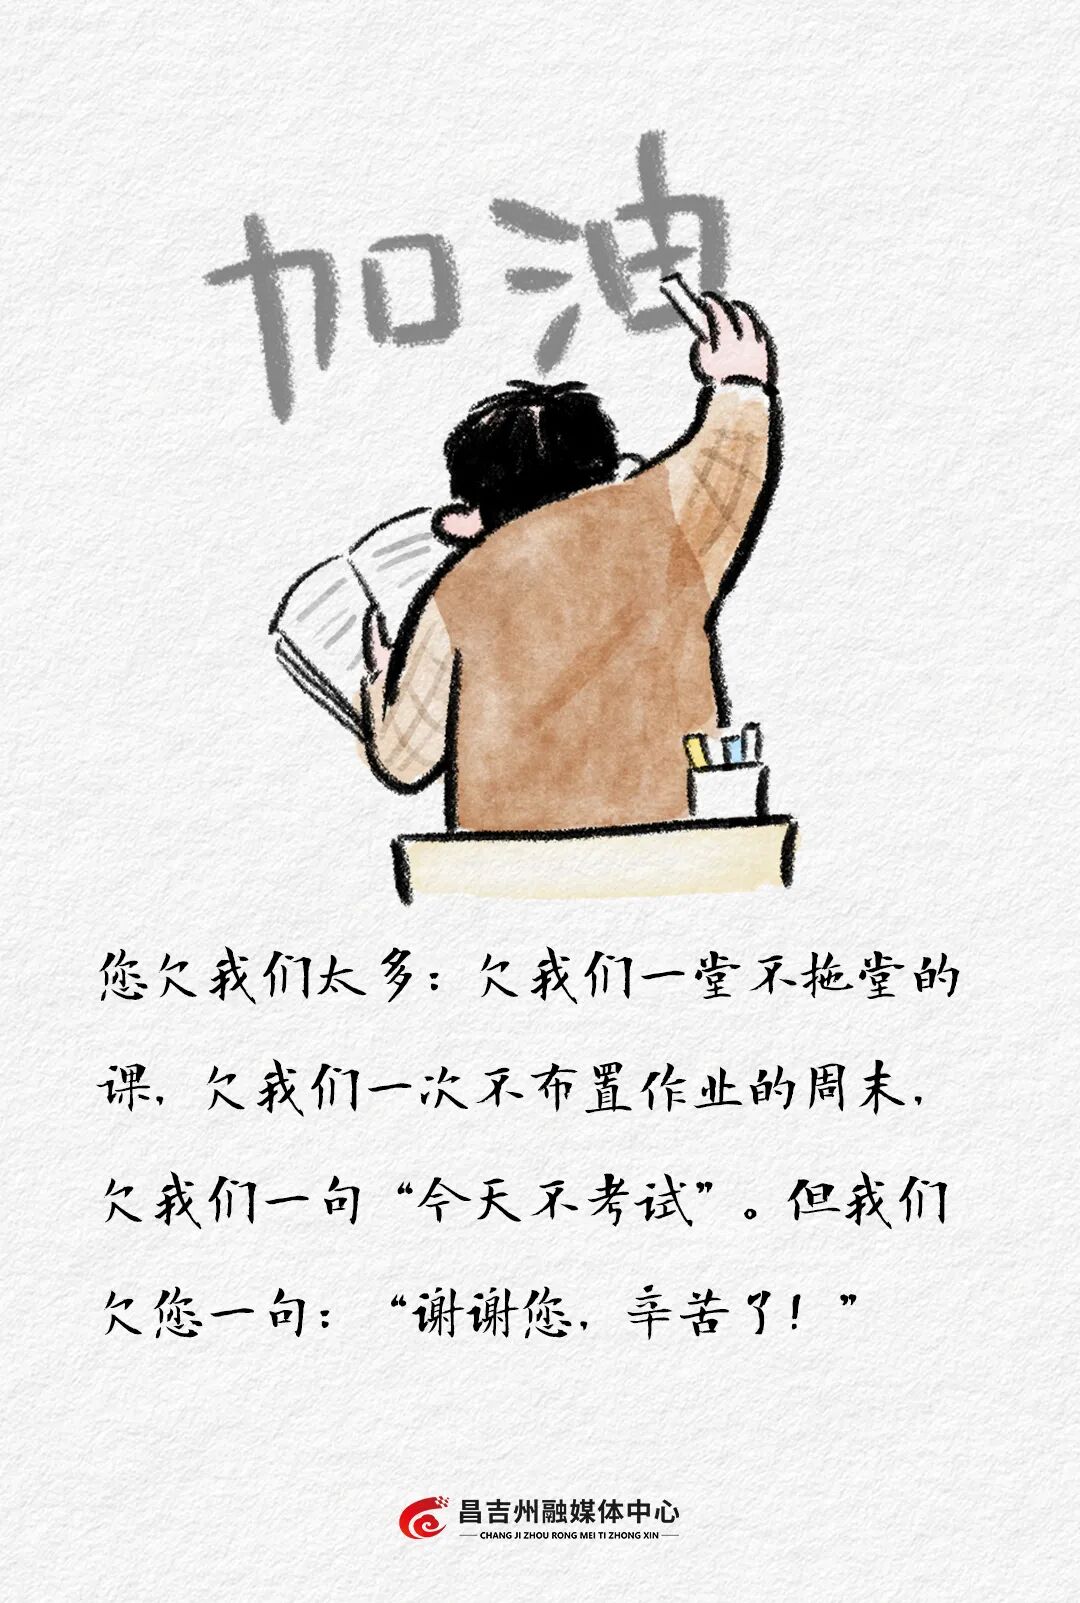 加油
您欠我们太多：欠我们一堂不拖堂的
课，欠我们一次不布置作业的周末，
欠我们一句“今天不考试”。但我们
欠您一句：“谢谢您，辛苦了！”
昌吉州融媒体中心
CHANG JI ZHOU RONG MEI TI ZHONG XIN